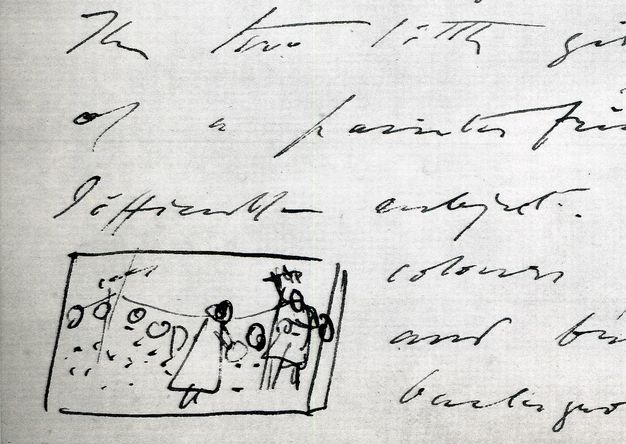 The two little gi
of a painter fri
difficult subject.
colours
and
backgro